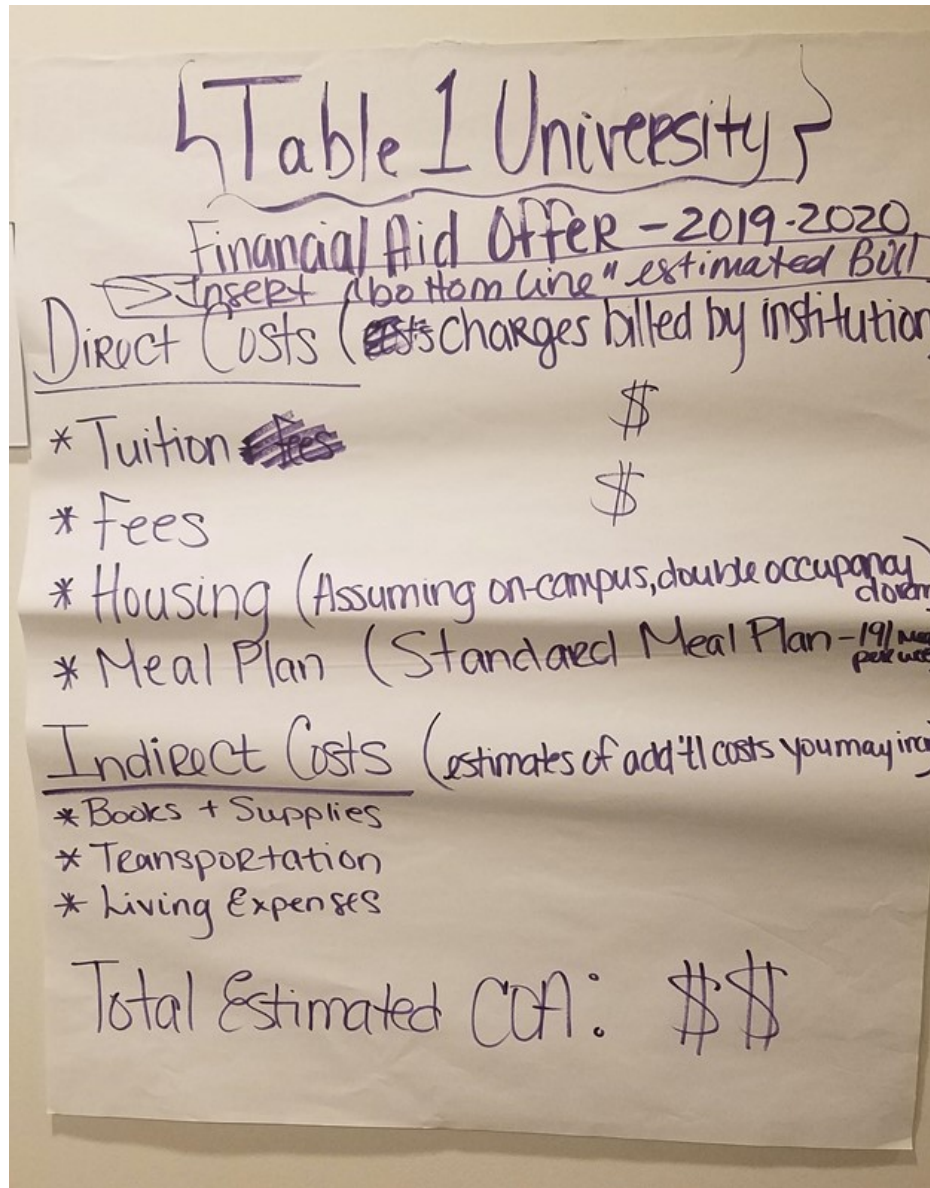 {Table 1 University}
Financial Aid Offer - 2019-2020
Insert "bottom line" estimated Bill
Direct Costs (charges billed by institution
* Tuition $
* Fees $
* Housing (Assuming on-campus, double occupancy
dorm
* Meal Plan (Standard Meal Plan - 19
per
Indirect Costs (estimates of add'tl costs you may
* Books + Supplies
* Transportation
* Living Expenses
Total Estimated COA: $$